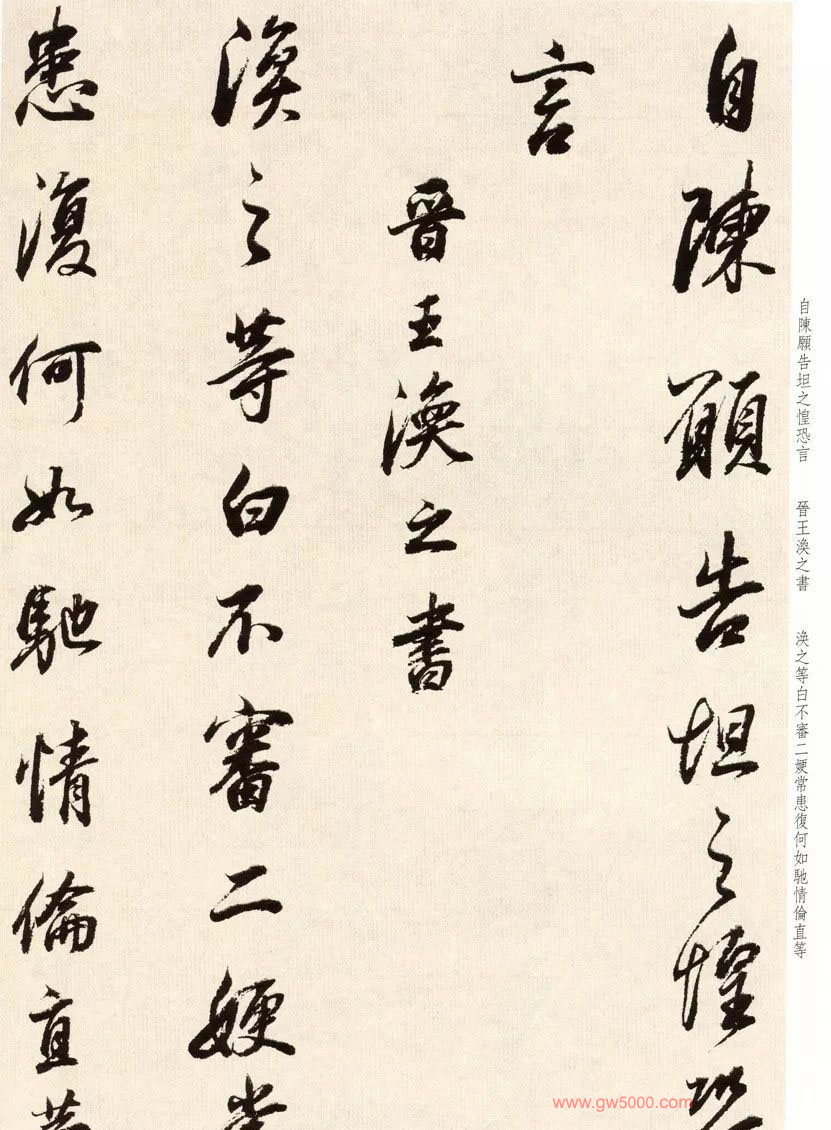 自陳願告坦之惶恐
言
晉王渙之書
渙之等白不審二㛐常
患復何如馳情倫直等
自陳願告坦之惶恐言 晉王渙之書 渙之等白不審二㛐常患復何如馳情倫直等
www.gw5000.com